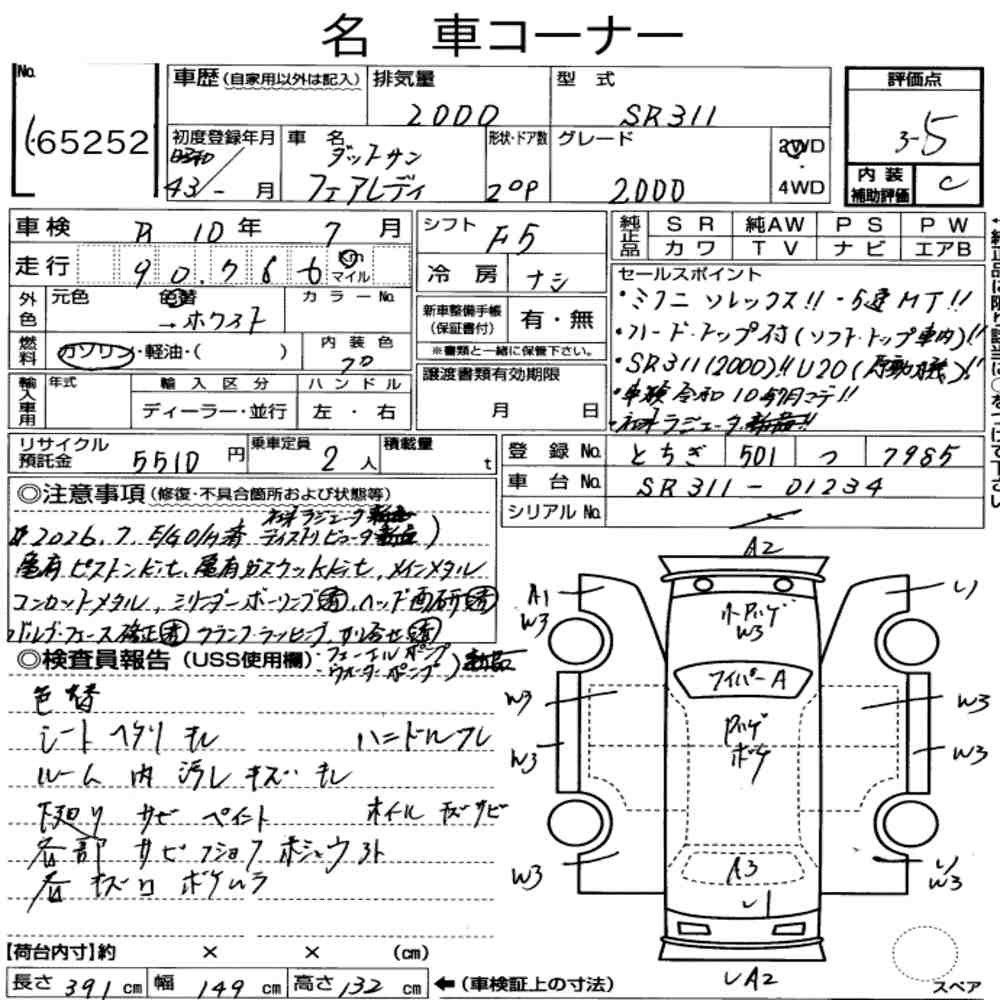 名 車コーナー
No.
65252
車歴(自家用以外は記入)
排気量
2000
型 式
SR311
評価点
3-5
初度登録年月
昭和
43/- 月
車 名
ダットサン
フェアレディ
形状・ドア数
2OP
グレード
2000
2WD
4WD
内装
補助評価
C
車検 R 10年 7月
走行
90,766
Km
マイル
シフト F5
冷房 ナシ
純正品
SR 純AW PS PW
カワ TV ナビ エアB
外色
元色
色替
→ホワイト
カラーNo.
新車整備手帳
(保証書付)
有・無
※書類と一緒に保管下さい。
セールスポイント
・ミクニ ソレックス!!・5速MT!!
・ハードトップ付(ソフトトップ車内)!!
・SR311(2000)!! U20(原動機)!!
・車検令和10年7月マデ!!
ラジエータ新品!!
燃料
ガソリン・軽油・( )
内装色
クロ
輸入車用
年式
輸入区分
ディーラー・並行
ハンドル
左・右
譲渡書類有効期限
月 日
リサイクル
預託金
5510円
乗車定員
2人
積載量
t
登録No. とちぎ 501 つ 7985
車台No. SR311-01234
シリアルNo.
◎注意事項(修復・不具合箇所および状態等)
ラジエータ新品
2026.7. E/G O/H済 ディストリビュータ新品)
亀有ピストンキット、亀有ガスケットキット、メインメタル
コンロットメタル、シリンダーボーリング済、ヘッド面研済
バルブフェース修正済 クランクラッピング、すり合せ済
◎検査員報告(USS使用欄)
フューエルポンプ
ウォーターポンプ) 新品
色替
シート ヘタリ キレ ハンドルスレ
ルーム内 汚レ キズ キレ
下廻り サビ ペイント オイル キズサビ
各部 サビ フショク ホシュウアト
各 キズ凹 ボケムラ
A2
A1
W3
W3
ワイパーA
Pハゲ
ボケ
W3
W3
W3
W3
W3
W3
A3
A2
スペア
【荷台内寸】約 × × (cm)
長さ 391 cm 幅 149 cm 高さ 132 cm ←(車検証上の寸法)